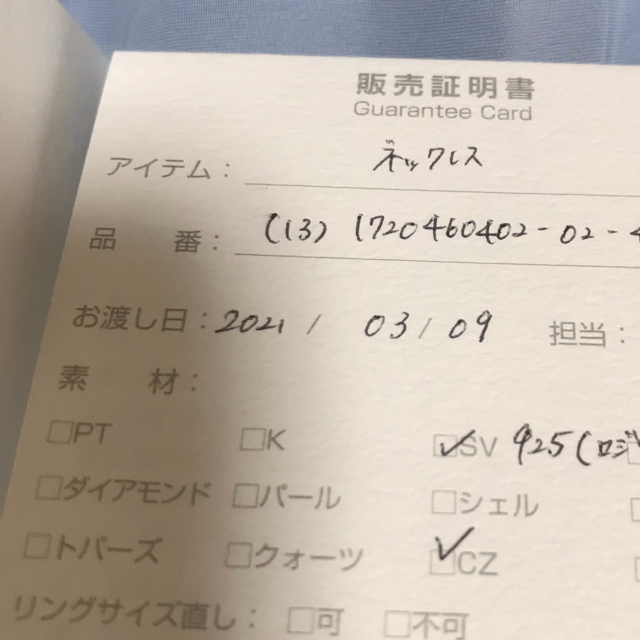 販売証明書
Guarantee Card
アイテム： ネックレス
品　番： (13) 1720460402-02-4
お渡し日：2021 / 03 / 09 担当：
素　材：
□PT □K ☑SV 925(ロジ
□ダイアモンド □パール □シェル
□トパーズ □クォーツ ☑CZ
リングサイズ直し： □可 □不可